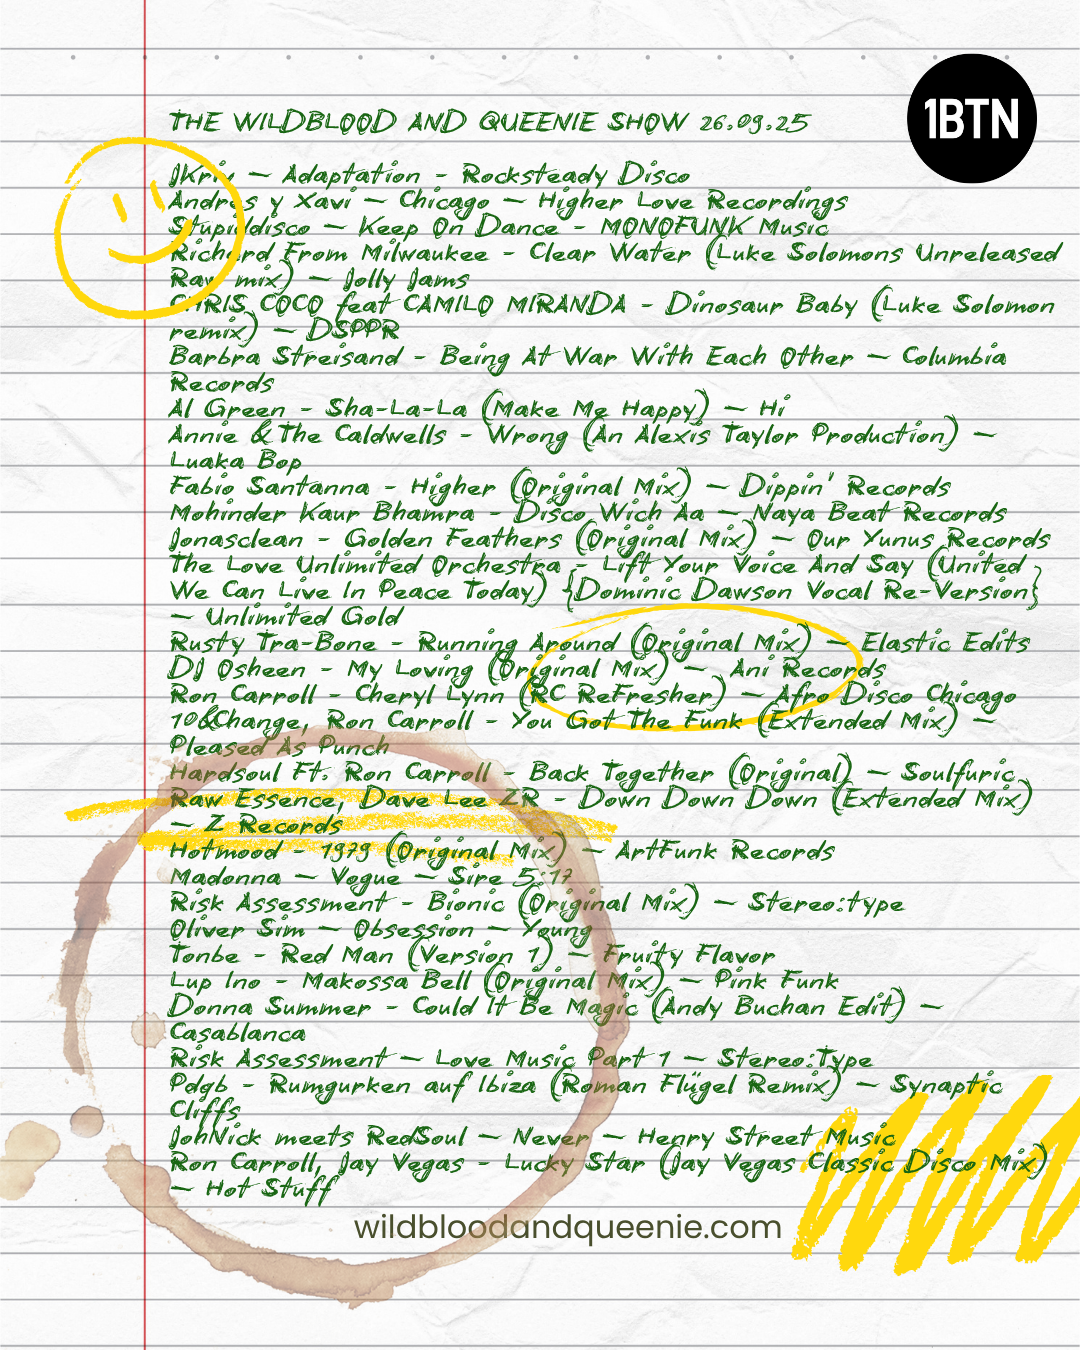 1BTN
THE WILDBLOOD AND QUEENIE SHOW 26.09.25
JKriv — Adaptation - Rocksteady Disco
Andres y Xavi — Chicago — Higher Love Recordings
Stupiddisco — Keep On Dance - MONOFUNK Music
Richard From Milwaukee - Clear Water (Luke Solomons Unreleased
Raw mix) — Jolly Jams
CHRIS COCO feat CAMILO MIRANDA - Dinosaur Baby (Luke Solomon
remix) — DSPPR
Barbra Streisand - Being At War With Each Other — Columbia
Records
Al Green - Sha-La-La (Make Me Happy) — Hi
Annie & The Caldwells - Wrong (An Alexis Taylor Production) —
Luaka Bop
Fabio Santanna - Higher (Original Mix) — Dippin' Records
Mohinder Kaur Bhamra - Disco Wich Aa — Naya Beat Records
Jonasclean - Golden Feathers (Original Mix) — Our Yunus Records
The Love Unlimited Orchestra - Lift Your Voice And Say (United
We Can Live In Peace Today) {Dominic Dawson Vocal Re-Version}
— Unlimited Gold
Rusty Tra-Bone - Running Around (Original Mix) — Elastic Edits
DJ Osheen - My Loving (Original Mix) — Ani Records
Ron Carroll - Cheryl Lynn (RC ReFresher) — Afro Disco Chicago
10&Change, Ron Carroll - You Got The Funk (Extended Mix) —
Pleased As Punch
Hardsoul Ft. Ron Carroll - Back Together (Original) — Soulfuric
Raw Essence, Dave Lee ZR - Down Down Down (Extended Mix)
— Z Records
Hotmood - 1979 (Original Mix) — ArtFunk Records
Madonna — Vogue — Sire 5:17
Risk Assessment - Bionic (Original Mix) — Stereo:type
Oliver Sim — Obsession — Young
Tonbe - Red Man (Version 1) — Fruity Flavor
Lup Ino - Makossa Bell (Original Mix) — Pink Funk
Donna Summer - Could It Be Magic (Andy Buchan Edit) —
Casablanca
Risk Assessment — Love Music Part 1 — Stereo:Type
Pdgb - Rumgurken auf Ibiza (Roman Flügel Remix) — Synaptic
Cliffs
JohNick meets RedSoul — Never — Henry Street Music
Ron Carroll, Jay Vegas - Lucky Star (Jay Vegas Classic Disco Mix)
— Hot Stuff
wildbloodandqueenie.com